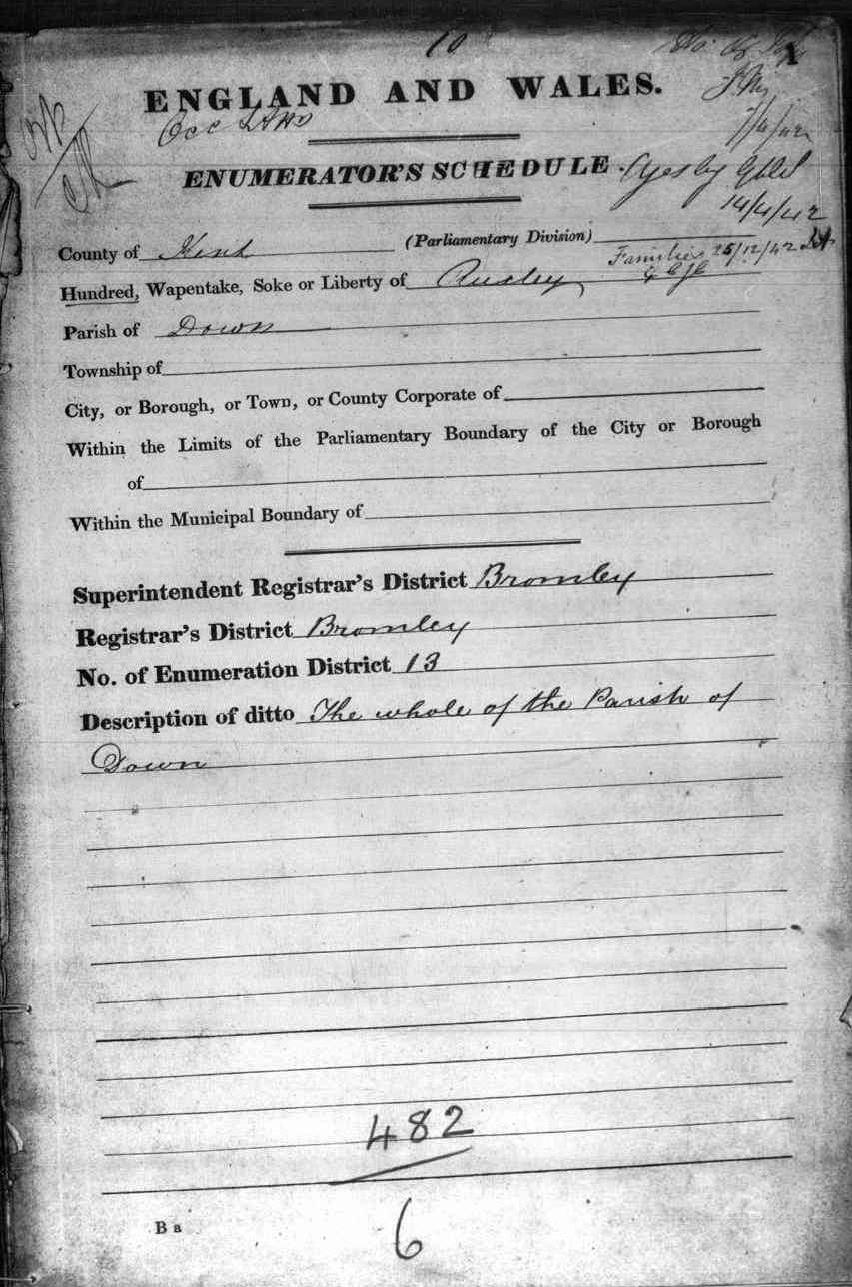 10
No. of
A
ENGLAND AND WALES.
Occ
7/4/42
ENUMERATOR'S SCHEDULE. Ages by
14/4/42
County of Kent (Parliamentary Division)
Families 25/12/42
Hundred, Wapentake, Soke or Liberty of Ruxley
Parish of Down
Township of
City, or Borough, or Town, or County Corporate of
Within the Limits of the Parliamentary Boundary of the City or Borough
of
Within the Municipal Boundary of
Superintendent Registrar's District Bromley
Registrar's District Bromley
No. of Enumeration District 13
Description of ditto The whole of the Parish of
Down
482
6
B a